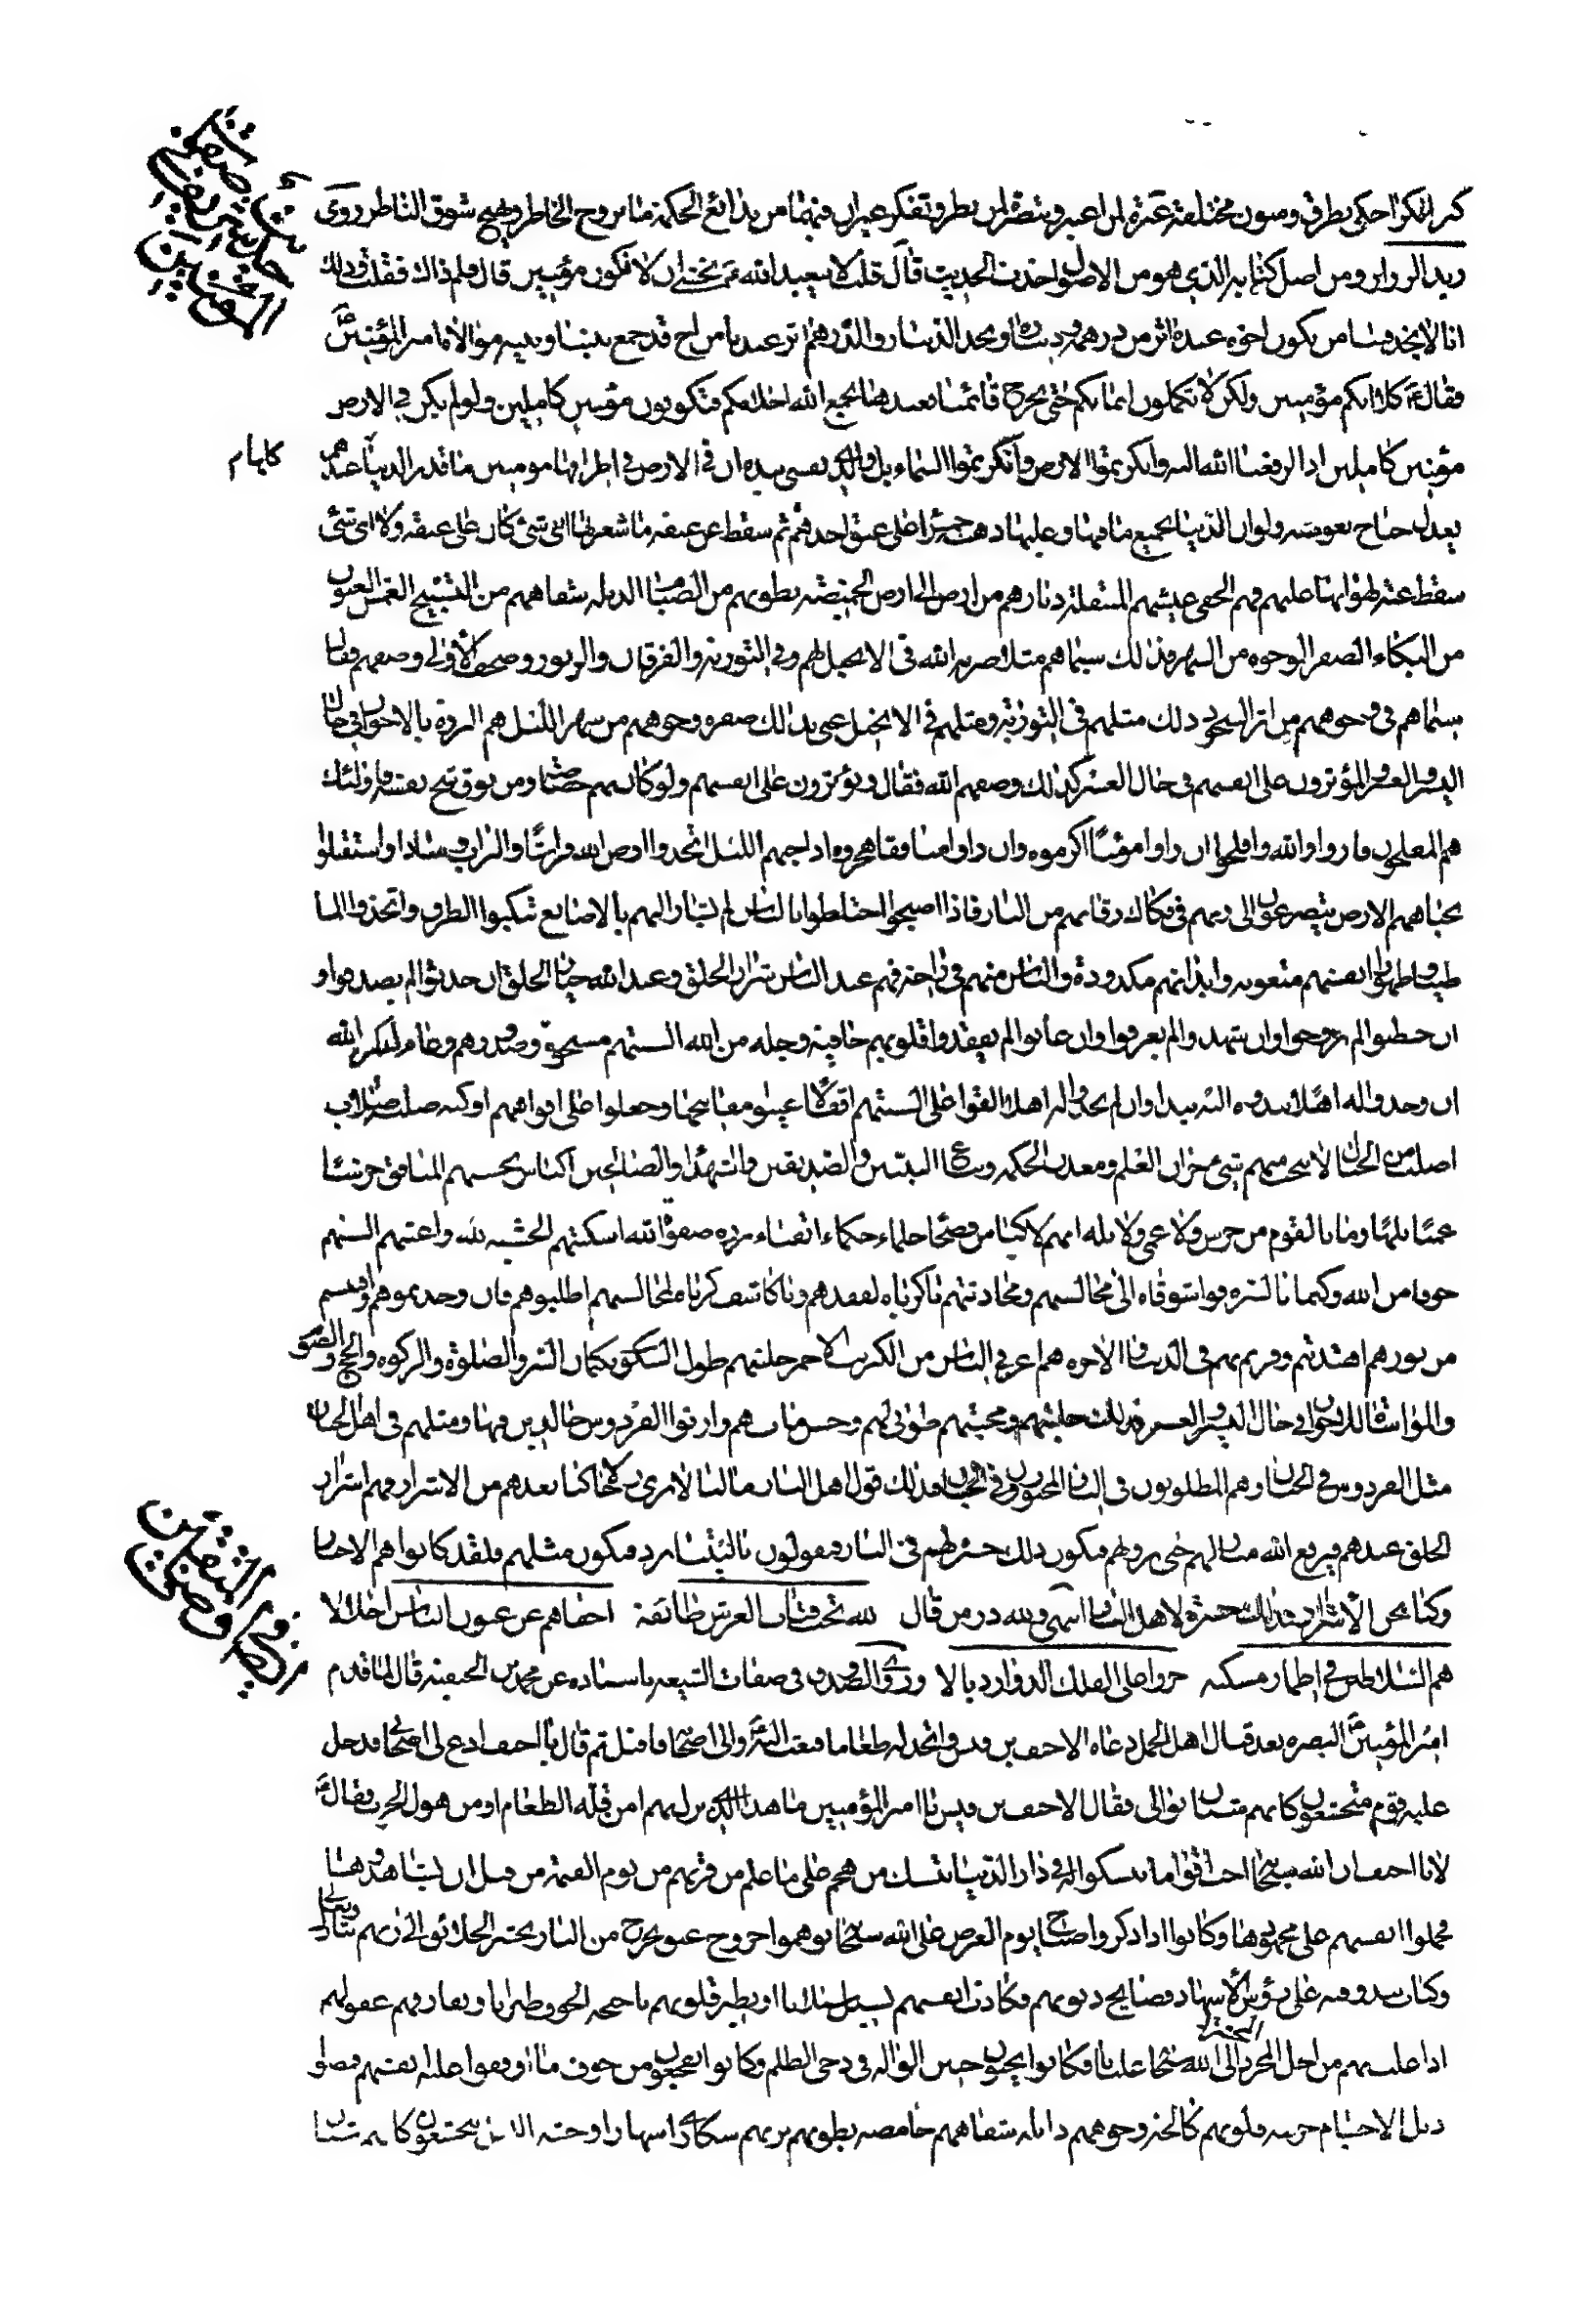 روى
زيد الزراد ومن اصل كتابه الذي هو من الاصول اخذت الحديث قال قلت لابيعبد الله نخشى ان لا نكون مؤمنين قال ولم ذاك فقلت وذلك
انا لا نجد فينا من يكون اخوه عنده اثر من درهمه وديناره ونجد الدينار والدرهم اثر عندنا من اخ قد جمع بيننا وبينه موالاة امير المؤمنين
فقال كلا انكم مؤمنين ولكن لا تكملون ايمانكم حتى يخرج قائمنا فعندها يجمع الله احلامكم فتكونون مؤمنين كاملين ولو لم يكن في الارض
مؤمنين كاملين اذا لرفعنا الله اليه وانكرتموا الارض وانكرتموا السماء بل والذي نفسي بيده ان في الارض في اطرافها مومنين ما قدر الدنيا عندهم
يعدل جناح بعوضه ولو ان الدنيا بجميع ما فيها وعليها ذهب على عنق احدهم ثم سقط عن عنقه ما شعر بها اي شئ كان على عنقه ولا اي شئ
سقط عنه لهوانها عليهم فهم الخفي عيشهم المنتقلة ديارهم من ارض الى ارض الخميصة بطونهم من الصيام الذبله شفاههم من التسبيح العمش العيون
من البكاء الصفر الوجوه من السهر فذلك سيماهم مثلا ضربه الله في الانجيل لهم وفي التورية والفرقان والزبور وصحف الاولى وصفهم فقال
سيماهم في وجوههم من اثر السجود ذلك مثلهم في التورية ومثلهم في الانجيل عنى بذلك صفرة وجوههم من سهر الليل هم البررة بالاخوان في حال
اليسر والعسر المؤثرون على انفسهم في حال العسر كذلك وصفهم الله فقال ويؤثرون على انفسهم ولو كان بهم خصاصة ومن يوق شح نفسه فاولئك
هم المفلحون فازوا والله وافلحوا ان راوا مؤمنا اكرموه وان راوا منافقا هجروه اذا جنهم الليل اتخذوا ارض الله فراشا والتراب وسادا واستقبلوا
بجباههم الارض يتضرعون الى ربهم في فكاك رقابهم من النار فاذا اصبحوا اختلطوا بالناس لم يشار اليهم بالاصابع تنكبوا الطرق واتخذوا الماء
طيبا وطهورا انفسهم متعوبه وابدانهم مكدودة والناس منهم في راحة فهم عند الناس شرار الخلق وعند الله خيار الخلق ان حدثوا لم يصدقوا و
ان خطبوا لم يزوجوا وان شهدوا لم يعرفوا وان غابوا لم يفقدوا قلوبهم خائفة وجله من الله السنتهم مسجونه وصدورهم وعاء لسر الله
ان وجدوا له اهلا نبذوه اليه نبذا وان لم يجدوا له اهلا القوا على السنتهم اقفالا غيبوا مفاتيحها وجعلوا على افواههم اوكيه صلب صلاب
اصلب من الجبال لا ينحت منهم شئ خزان العلم ومعدن الحكمه وتباع النبيين والصديقين والشهداء والصالحين اكياس يحسبهم المنافق خرسا
عميا بلها وما بالقوم من خرس ولا عمى ولا بله انهم لاكياس فصحا حلماء حكماء اتقياء برره صفوة الله اسكنتهم الخشيه لله واعيتهم السنتهم
خوفا من الله وكتمانا لسره فوا شوقاه الى مجالستهم ومحادثتهم يا كرباه لفقدهم ويا كاشف كرباه لمجالستهم اطلبوهم فان وجدتموهم واقتبستم
من نورهم اهتديتم وفزتم بهم في الدنيا والاخره هم اعز في الناس من الكبريت الاحمر حليتهم طول السكوت بكتمان السر والصلوة والزكوه والحج والصوم
والمواساة للاخوان في حال اليسر والعسر فذلك حليتهم ومحبتهم طوبى لهم وحسن ماب هم وارثوا الفردوس خالدين فيها ومثلهم في اهل الجنان
مثل الفردوس في الجنان وهم المطلوبون في النار المحبورون في الجنان فذلك قول اهل النار ما لنا لا نرى رجالا كنا نعدهم من الاشرار فهم اشرار
الخلق عندهم فيرفع الله منازلهم حتى يروهم فيكون ذلك حسرة لهم في النار ويقولون يا ليتنا نرد فنكون مثلهم فلقد كانوا هم الاخيار
وكنا نحن الاشرار فذلك حسرة لاهل النار انتهى ولله در من قال لله تحت قباب العرش طائفة اخفاهم عن عيون الناس اجلالا
هم السلاطين في اطمار مسكنه جروا على الفلك الدوار اذيالا وروى الصدوق في صفات الشيعه باسناده عن محمد بن الحنفيه قال لما قدم
امير المؤمنين البصره بعد قتال اهل الجمل دعاه الاحنف بن قيس واتخذ له طعاما فبعث اليه والى اصحابه فاقبل ثم قال يا احنف ادع لي اصحابي فدخل
عليه قوم متخشعون كانهم شنان بوالى فقال الاحنف بن قيس يا امير المؤمنين ما هذا الذي نزل بهم امن قلة الطعام او من هول الحرب فقال
لا يا احنف ان الله سبحانه احب اقواما تنسكوا له في دار الدنيا تنسك من هجم على ما علم من قربهم من يوم القيمة من قبل ان يشاهدوها
فحملوا انفسهم على مجهودها وكانوا اذا ذكروا صباح يوم العرض على الله سبحانه توهموا خروج عنق يخرج من النار يحشر الخلائق الى ربهم تبارك وتعالى
وكتاب يبدو فيه على رؤس الاشهاد فضايح ذنوبهم فكادت انفسهم تسيل سيلانا او تطير قلوبهم باجنحه الخوف طيرانا وتفارقهم عقولهم
اذا غلت بهم من اجل المجرد الى الله سبحانه غليانا فكانوا يحنون حنين الواله في دجى الظلم وكانوا يفجعون من خوف ما اوقفوا عليه انفسهم فمضوا
ذبل الاجسام حزينه قلوبهم كالحة وجوههم ذابله شفاههم خامصه بطونهم تريهم سكارى